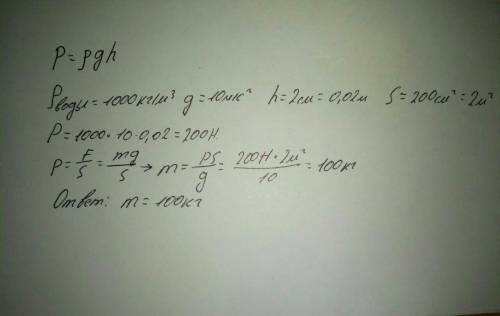 P = ρgh
ρводы = 1000кг/м³ g = 10м/с² h = 2см = 0,02м S = 200см² = 2м²
P = 1000 · 10 · 0,02 = 200Н
P = F/S = mg/S → m = PS/g = 200Н · 2м²/10 = 100кг
Ответ: m = 100кг